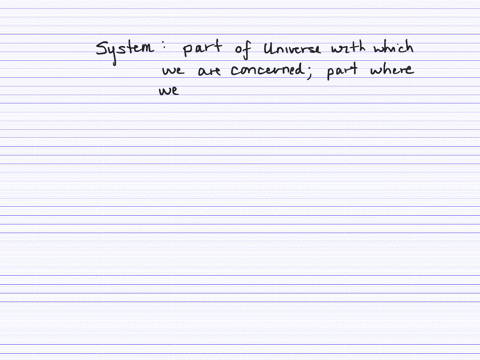 System: part of Universe with which
we are concerned; part where
we